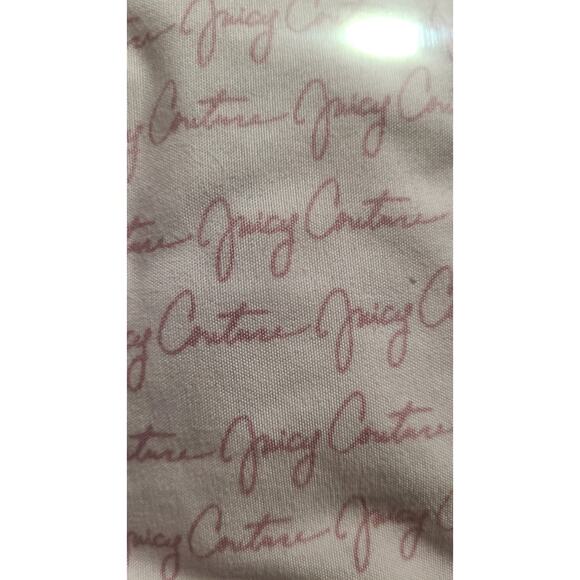 Juicy Couture
Couture Juicy Cou
ture Juicy Couture
cy Couture Juicy C
ture Juicy Couture
uicy Couture Juicy C